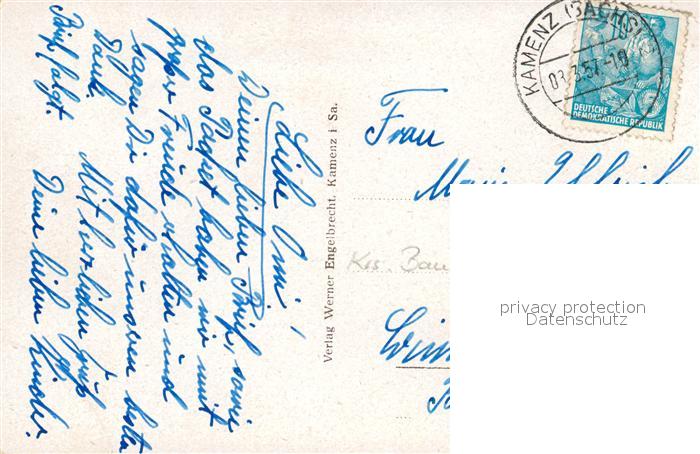 Liebe Omi!
Deinen lieben Brief, sowie
das Packet haben wir mit
großer Freude erhalten und
sagen Dir dafür unseren besten
Dank. Mit herzlichem Gruß
Brief folgt. Deine lieben Kinder.
Verlag Werner Engelbrecht, Kamenz i Sa.
KAMENZ (SACHS)
57.-10
DEUTSCHE
DEMOKRATISCHE REPUBLIK
Frau
Krs. Bau
privacy protection
Datenschutz